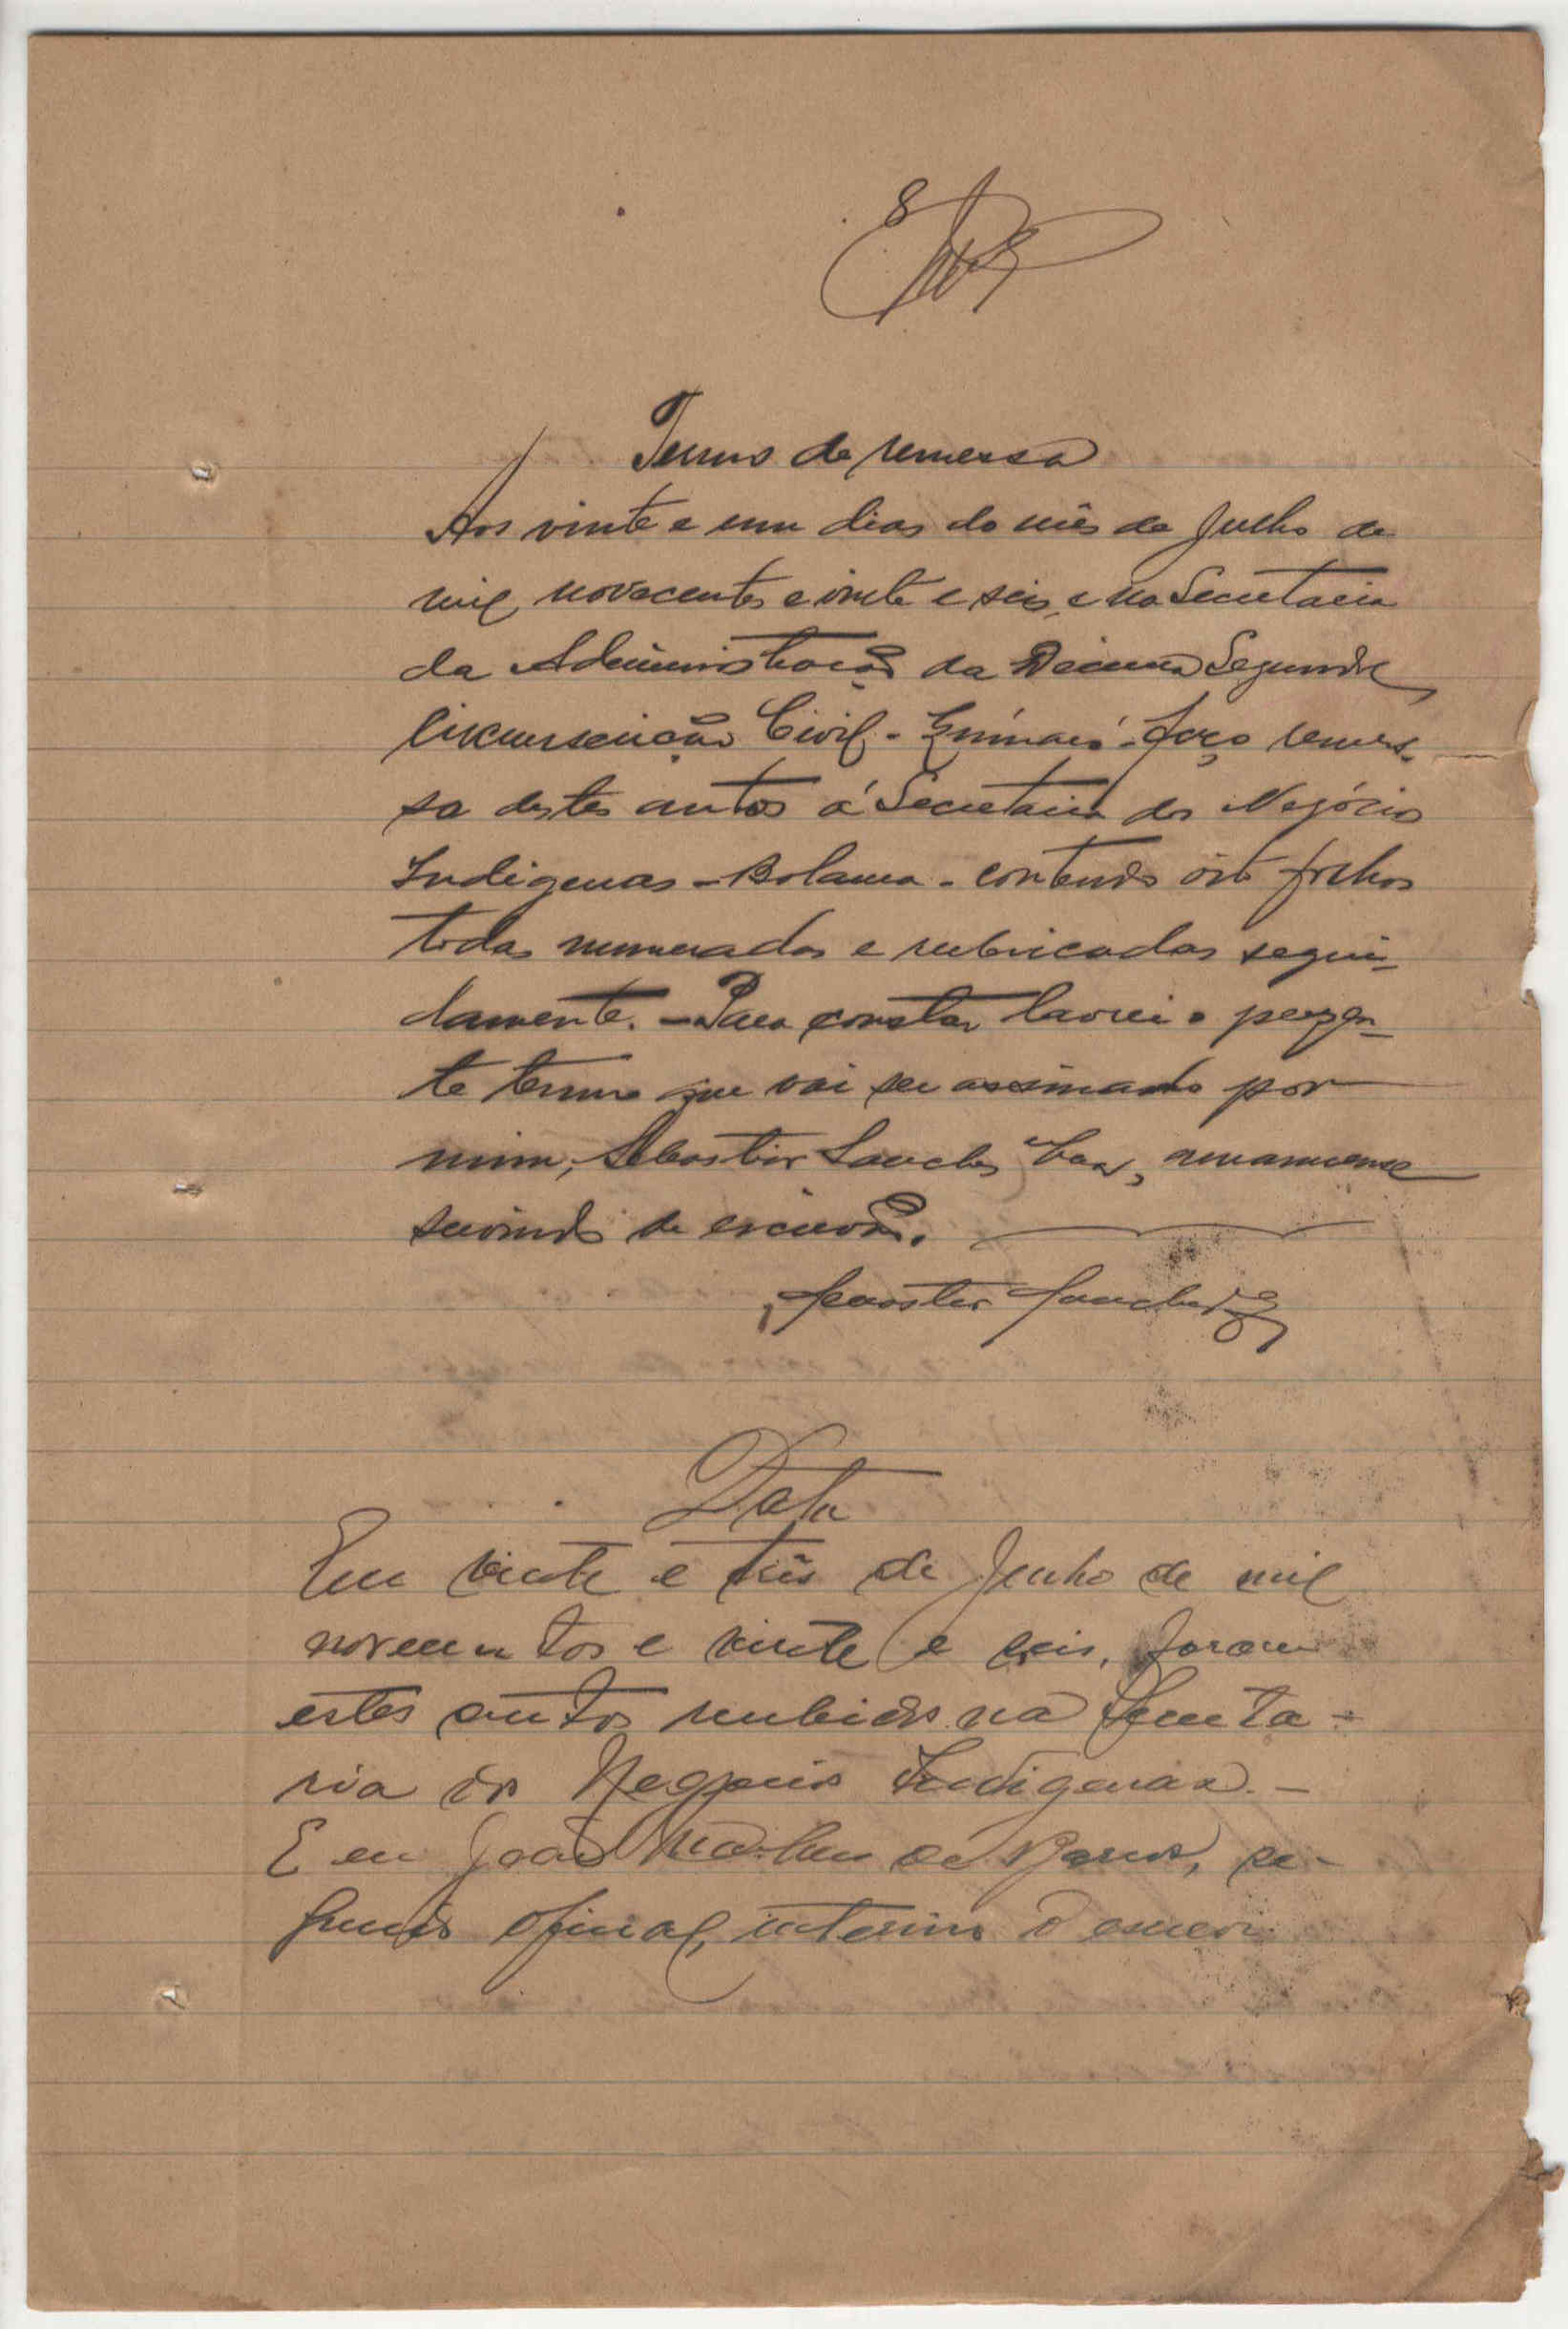 8
Termo de remessa
Aos vinte e um dias do mês de Julho de
mil novecentos e vinte e seis, e na Secretaria
da Administração da Decima Segunda
Circunscrição Civil - Faço remes-
sa destes autos á Secretaria dos Negócios
Indigenas - Bolama - contendo oito folhas
todas numeradas e rubricadas segui-
damente. - Para constar lavrei o prezen-
te termo que vai ser assinado por
mim, Sebastião Sanches Vaz, amanuense
servindo de escrivão.
Sanches
Data
Em vinte e três de Junho de mil
novecentos e vinte e seis, foram
estes autos recebidos na Secreta-
ria dos Negocios Indigenas. -
E eu João de Barros, se-
gundo oficial, interino o escrevi.